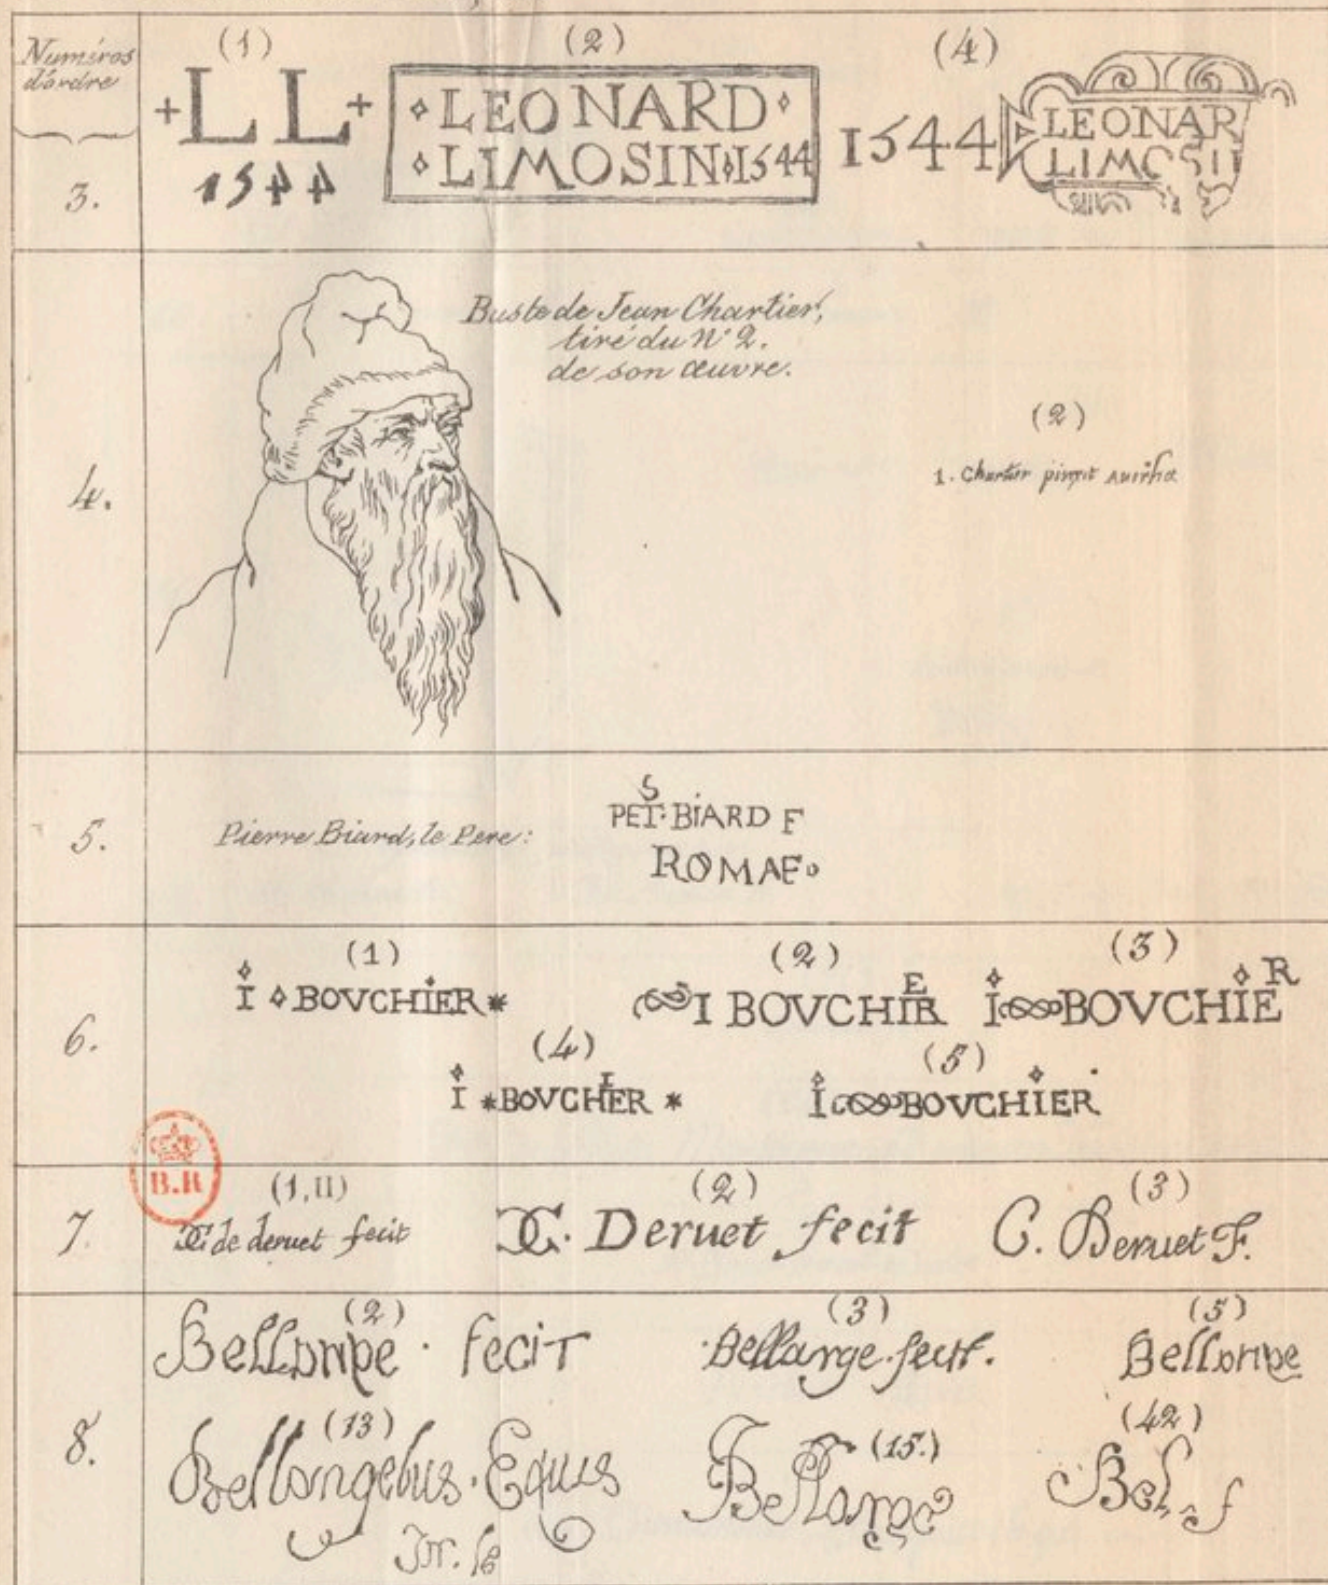 Numéros
d'ordre
3.
(1)
+LL+
1544
(2)
LEONARD
LIMOSIN 1544
(4)
1544
LEONAR
LIMOSI
4.
Buste de Jean Chartier,
tiré du N° 2.
de son œuvre.
(2)
1. Chartier pinxit
5.
Pierre Biard, le Pere:
PETS. BIARD F
ROMAE
6.
(1)
I BOVCHIER *
(2)
I BOVCHIER
(3)
I BOVCHIER
(4)
I * BOVCHIER *
(5)
I BOVCHIER
7.
(1,II)
de deruet fecit
(2)
CC. Deruet fecit
(3)
C. Deruet F.
8.
(2)
Bellange. fecit
(3)
Bellarge.fecit.
(5)
Bellange
(13)
Bellangelus. Eques
(15.)
Bellange
(42)
Bel. f
B.R